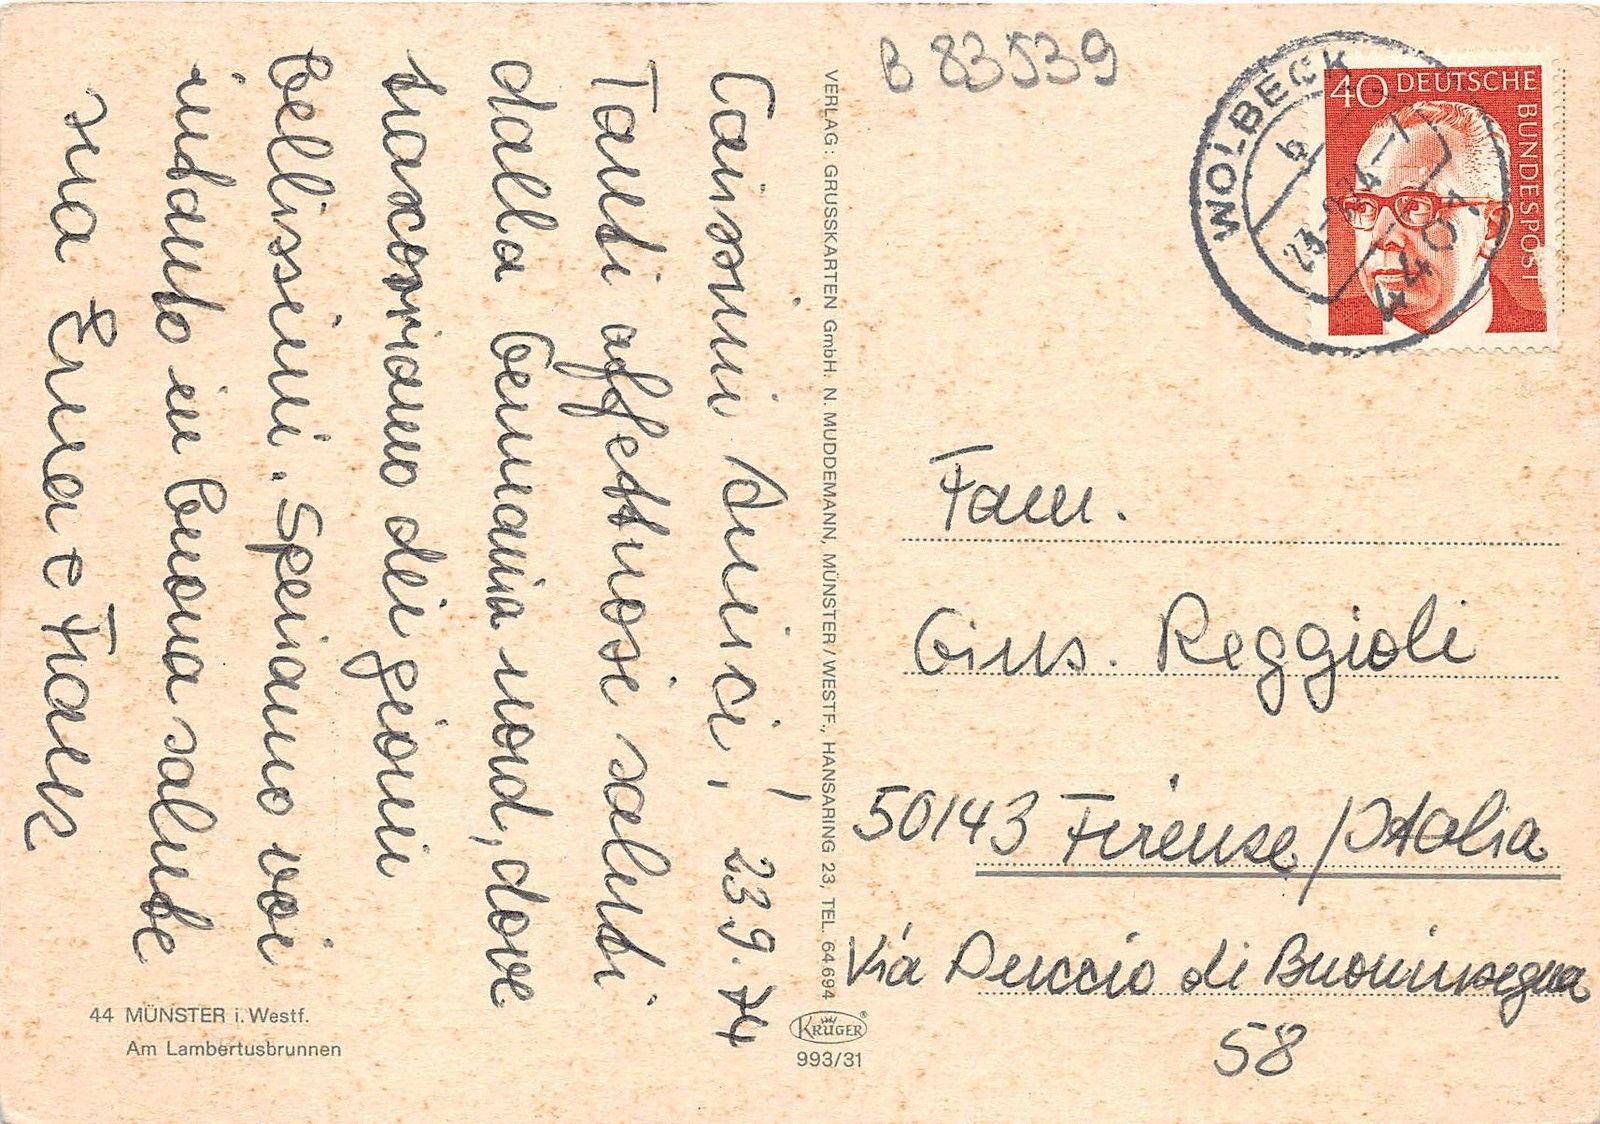 Carissimi Amici, 23 9. 74
Tanti affettuosi saluti
dalla Germania nord, dove
trascorriamo dei giorni
bellissimi. Speriamo voi
intanto in buona salute
sua Erna e Frank
44 MÜNSTER i. Westf.
Am Lambertusbrunnen
VERLAG: GRUSSKARTEN GmbH. N. MUDDEMANN, MÜNSTER/WESTF., HANSARING 23, TEL. 64694
KRÜGER®
993/31
B 83539
40 DEUTSCHE
BUNDESPOST
WOLBECK
b
4401
Fam.
Gius. Reggioli
50143 Firenze/Italia
Via Duccio di Buoninsegna
58